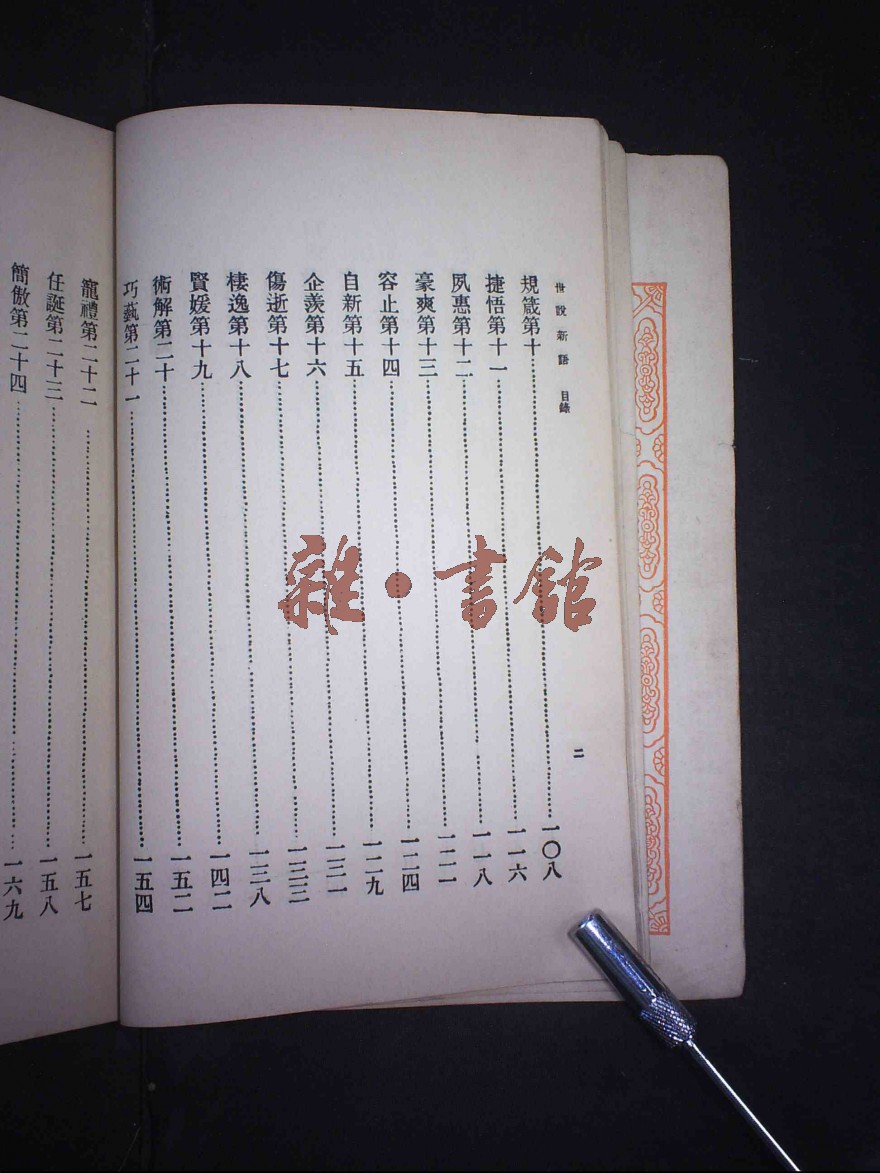 世說新語 目錄
規箴第十……一〇八
捷悟第十一……一一六
夙惠第十二……一一八
豪爽第十三……一二一
容止第十四……一二四
自新第十五……一二九
企羨第十六……一三一
傷逝第十七……一三三
棲逸第十八……一三八
賢媛第十九……一四二
術解第二十……一五二
巧藝第二十一……一五四
二
寵禮第二十二……一五七
任誕第二十三……一五八
簡傲第二十四……一六九
雜·書館